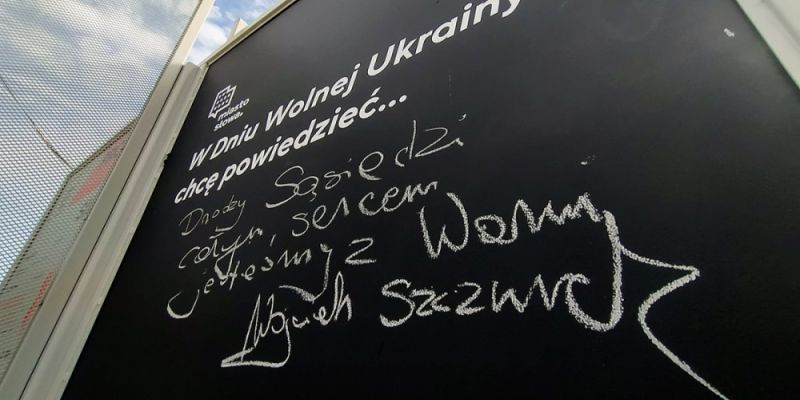 miasto
słowa.
W Dniu Wolnej Ukrainy
chcę powiedzieć...
Drodzy Sąsiedzi
całym sercem
jesteśmy z Wami
Wojciech Szczurek